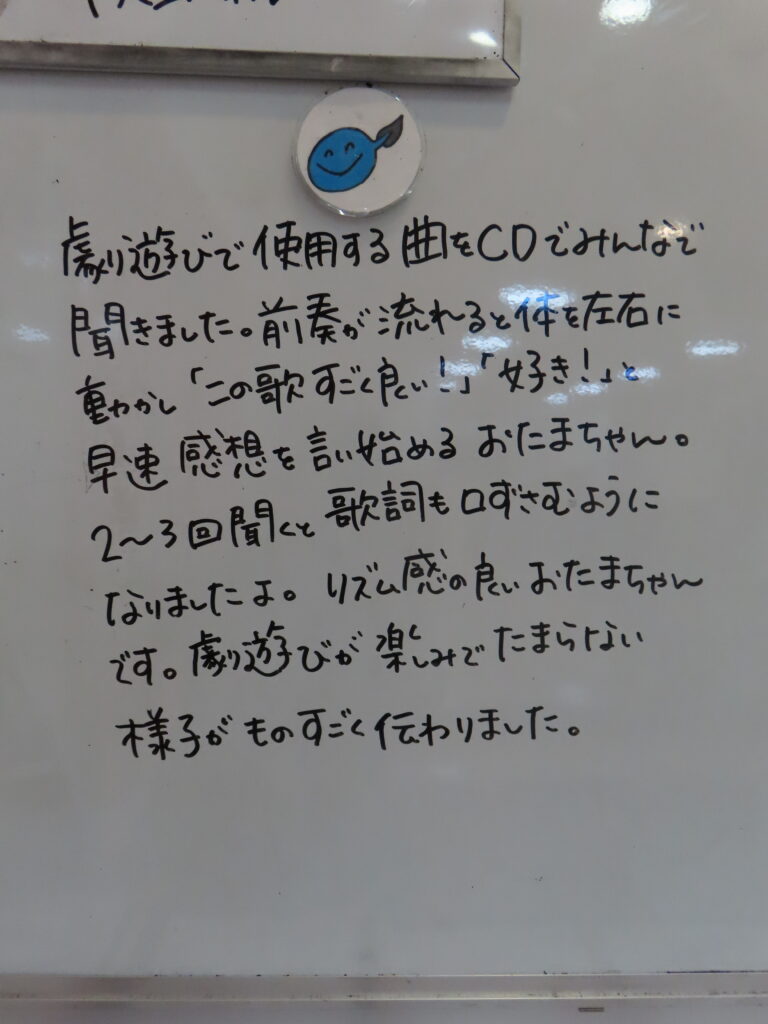 劇遊びで使用する曲をCDでみんなで
聞きました。前奏が流れると体を左右に
動かし「この歌すごく良い!」「好き!」と
早速感想を言い始めるおたまちゃん。
2〜3回聞くと歌詞も口ずさむように
なりましたよ。リズム感の良いおたまちゃん
です。劇遊びが楽しみでたまらない
様子がものすごく伝わりました。